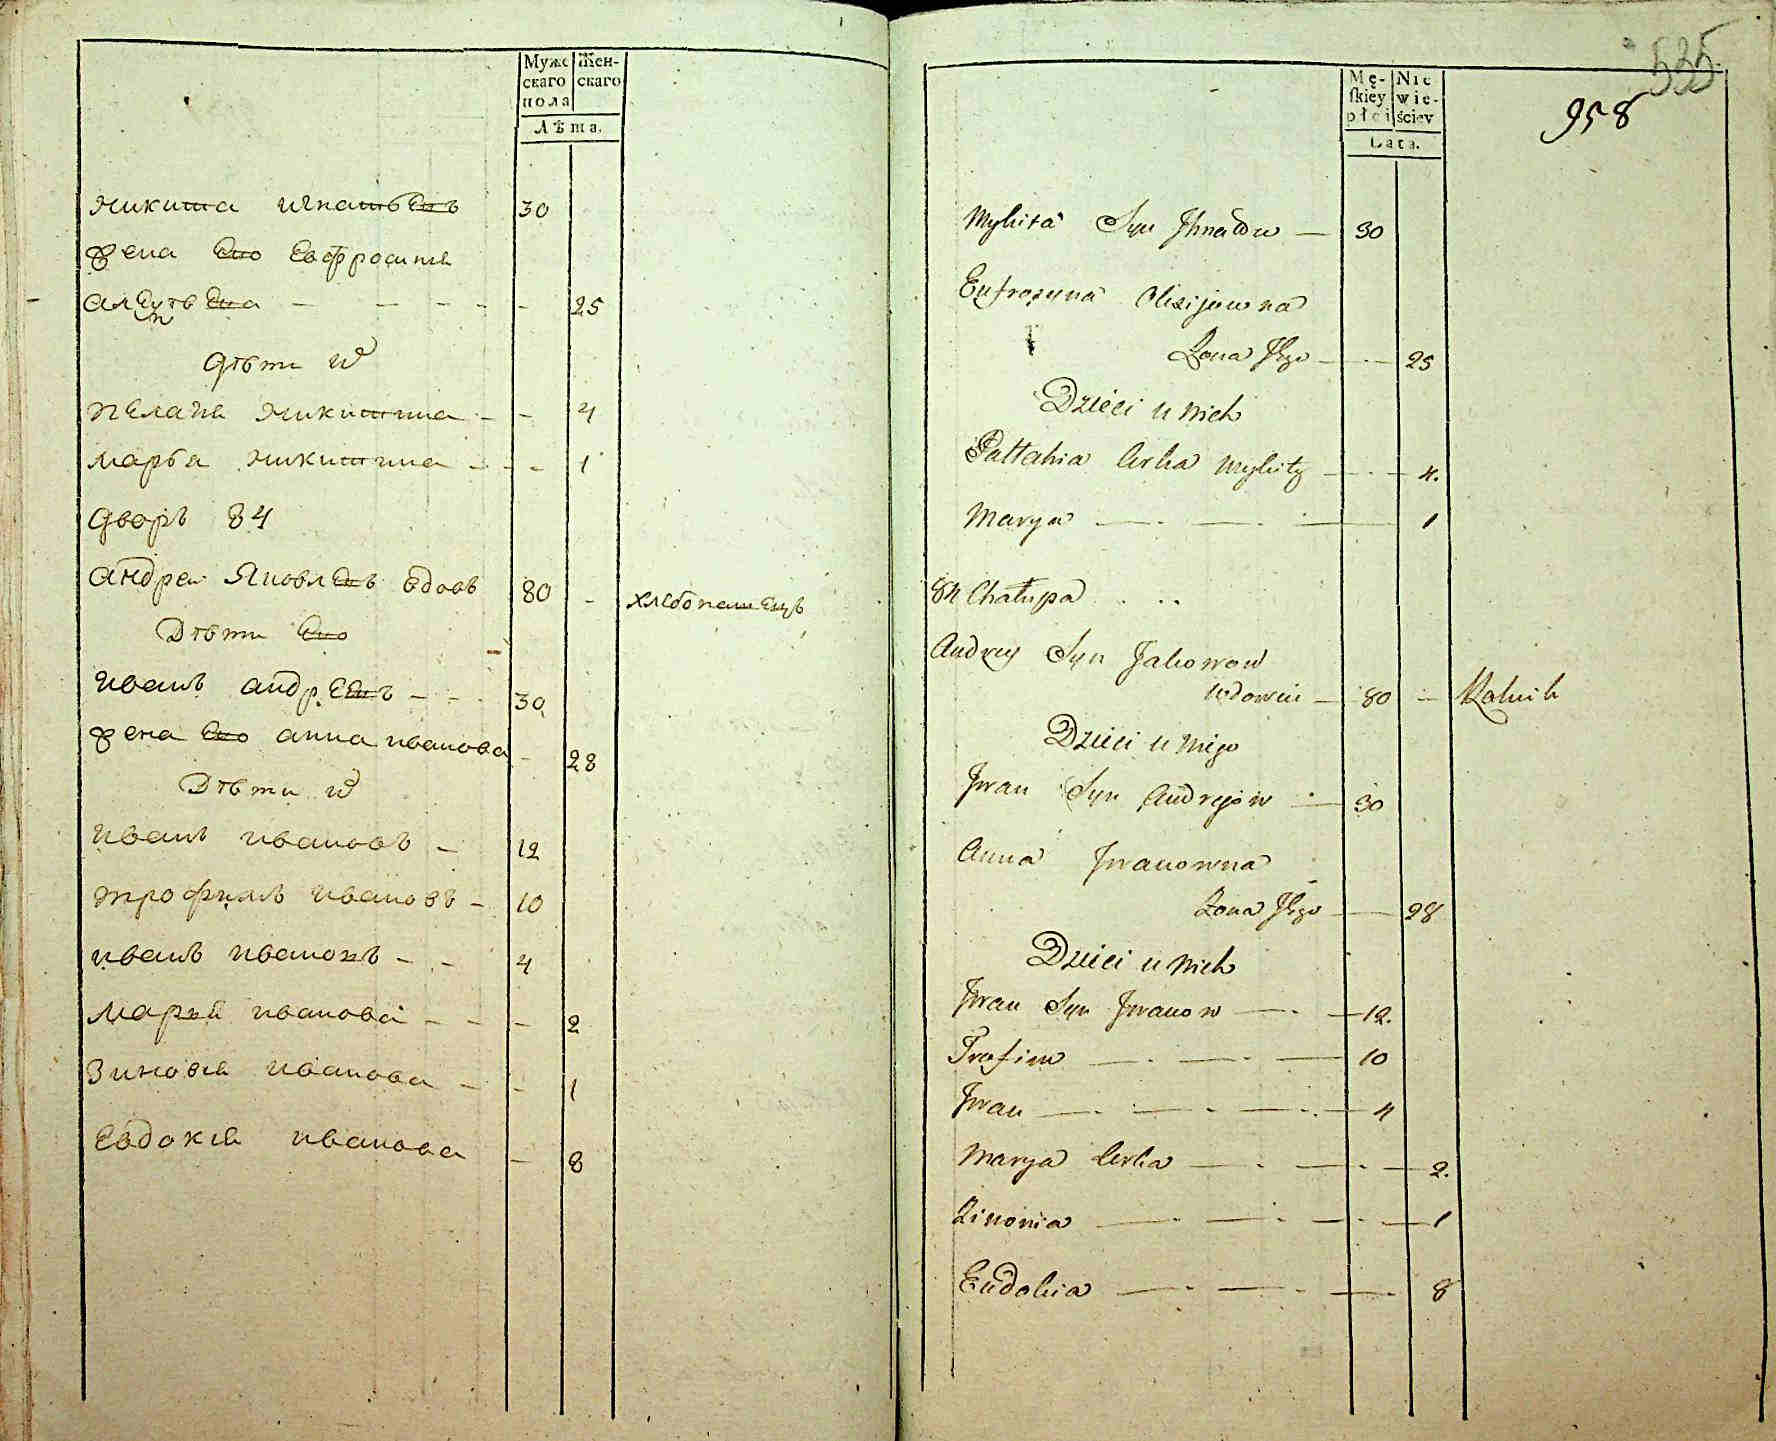 Муже Жен-
скаго скаго
пола
Лѣта.
Никита Игнатьевъ 30
Жена Его Евфросинiя
Алексѣева - - - - - 25
Дѣти их
Пелагiя Никитина - - 4
Марья Никитина - - - 1
Дворъ 84
Андреи Яковлевъ вдовъ 80 - хлебопашецъ
Дѣти Его
Иванъ Андреевъ - - - 30
Жена Его Анна Иванова - 28
Дѣти их
Иванъ Ивановъ - 12
Трофимъ Ивановъ - 10
Иванъ Ивановъ - - 4
Марья Иванова - - - 2
Зиновiя Иванова - - 1
Евдокiя Иванова - 8
535
958
Mę- Nie
skiey wie-
płci ściey
Lata.
Mykita Syn Ihnatów — 30
Eufrozyna Olexijowna
Żona Jego — - — 25
Dzieci u Nich
Pałłahia Corka Mykity — - — 4.
Marya — - — - — 1
84 Chałupa
Andrey Syn Jakowow
wdowiec — 80 — Rolnik
Dzieci u Niego
Iwan Syn Andrejów — 30
Anna Iwanowna
Żona Jego — — 28
Dzieci u Nich
Iwan Syn Iwanow — - — 12.
Trofim — - — - — 10
Iwan — - — - — - — 4
Marya Corka — - — - — 2.
Zinowia — - — - — - — 1
Eudokia — - — - — - 8